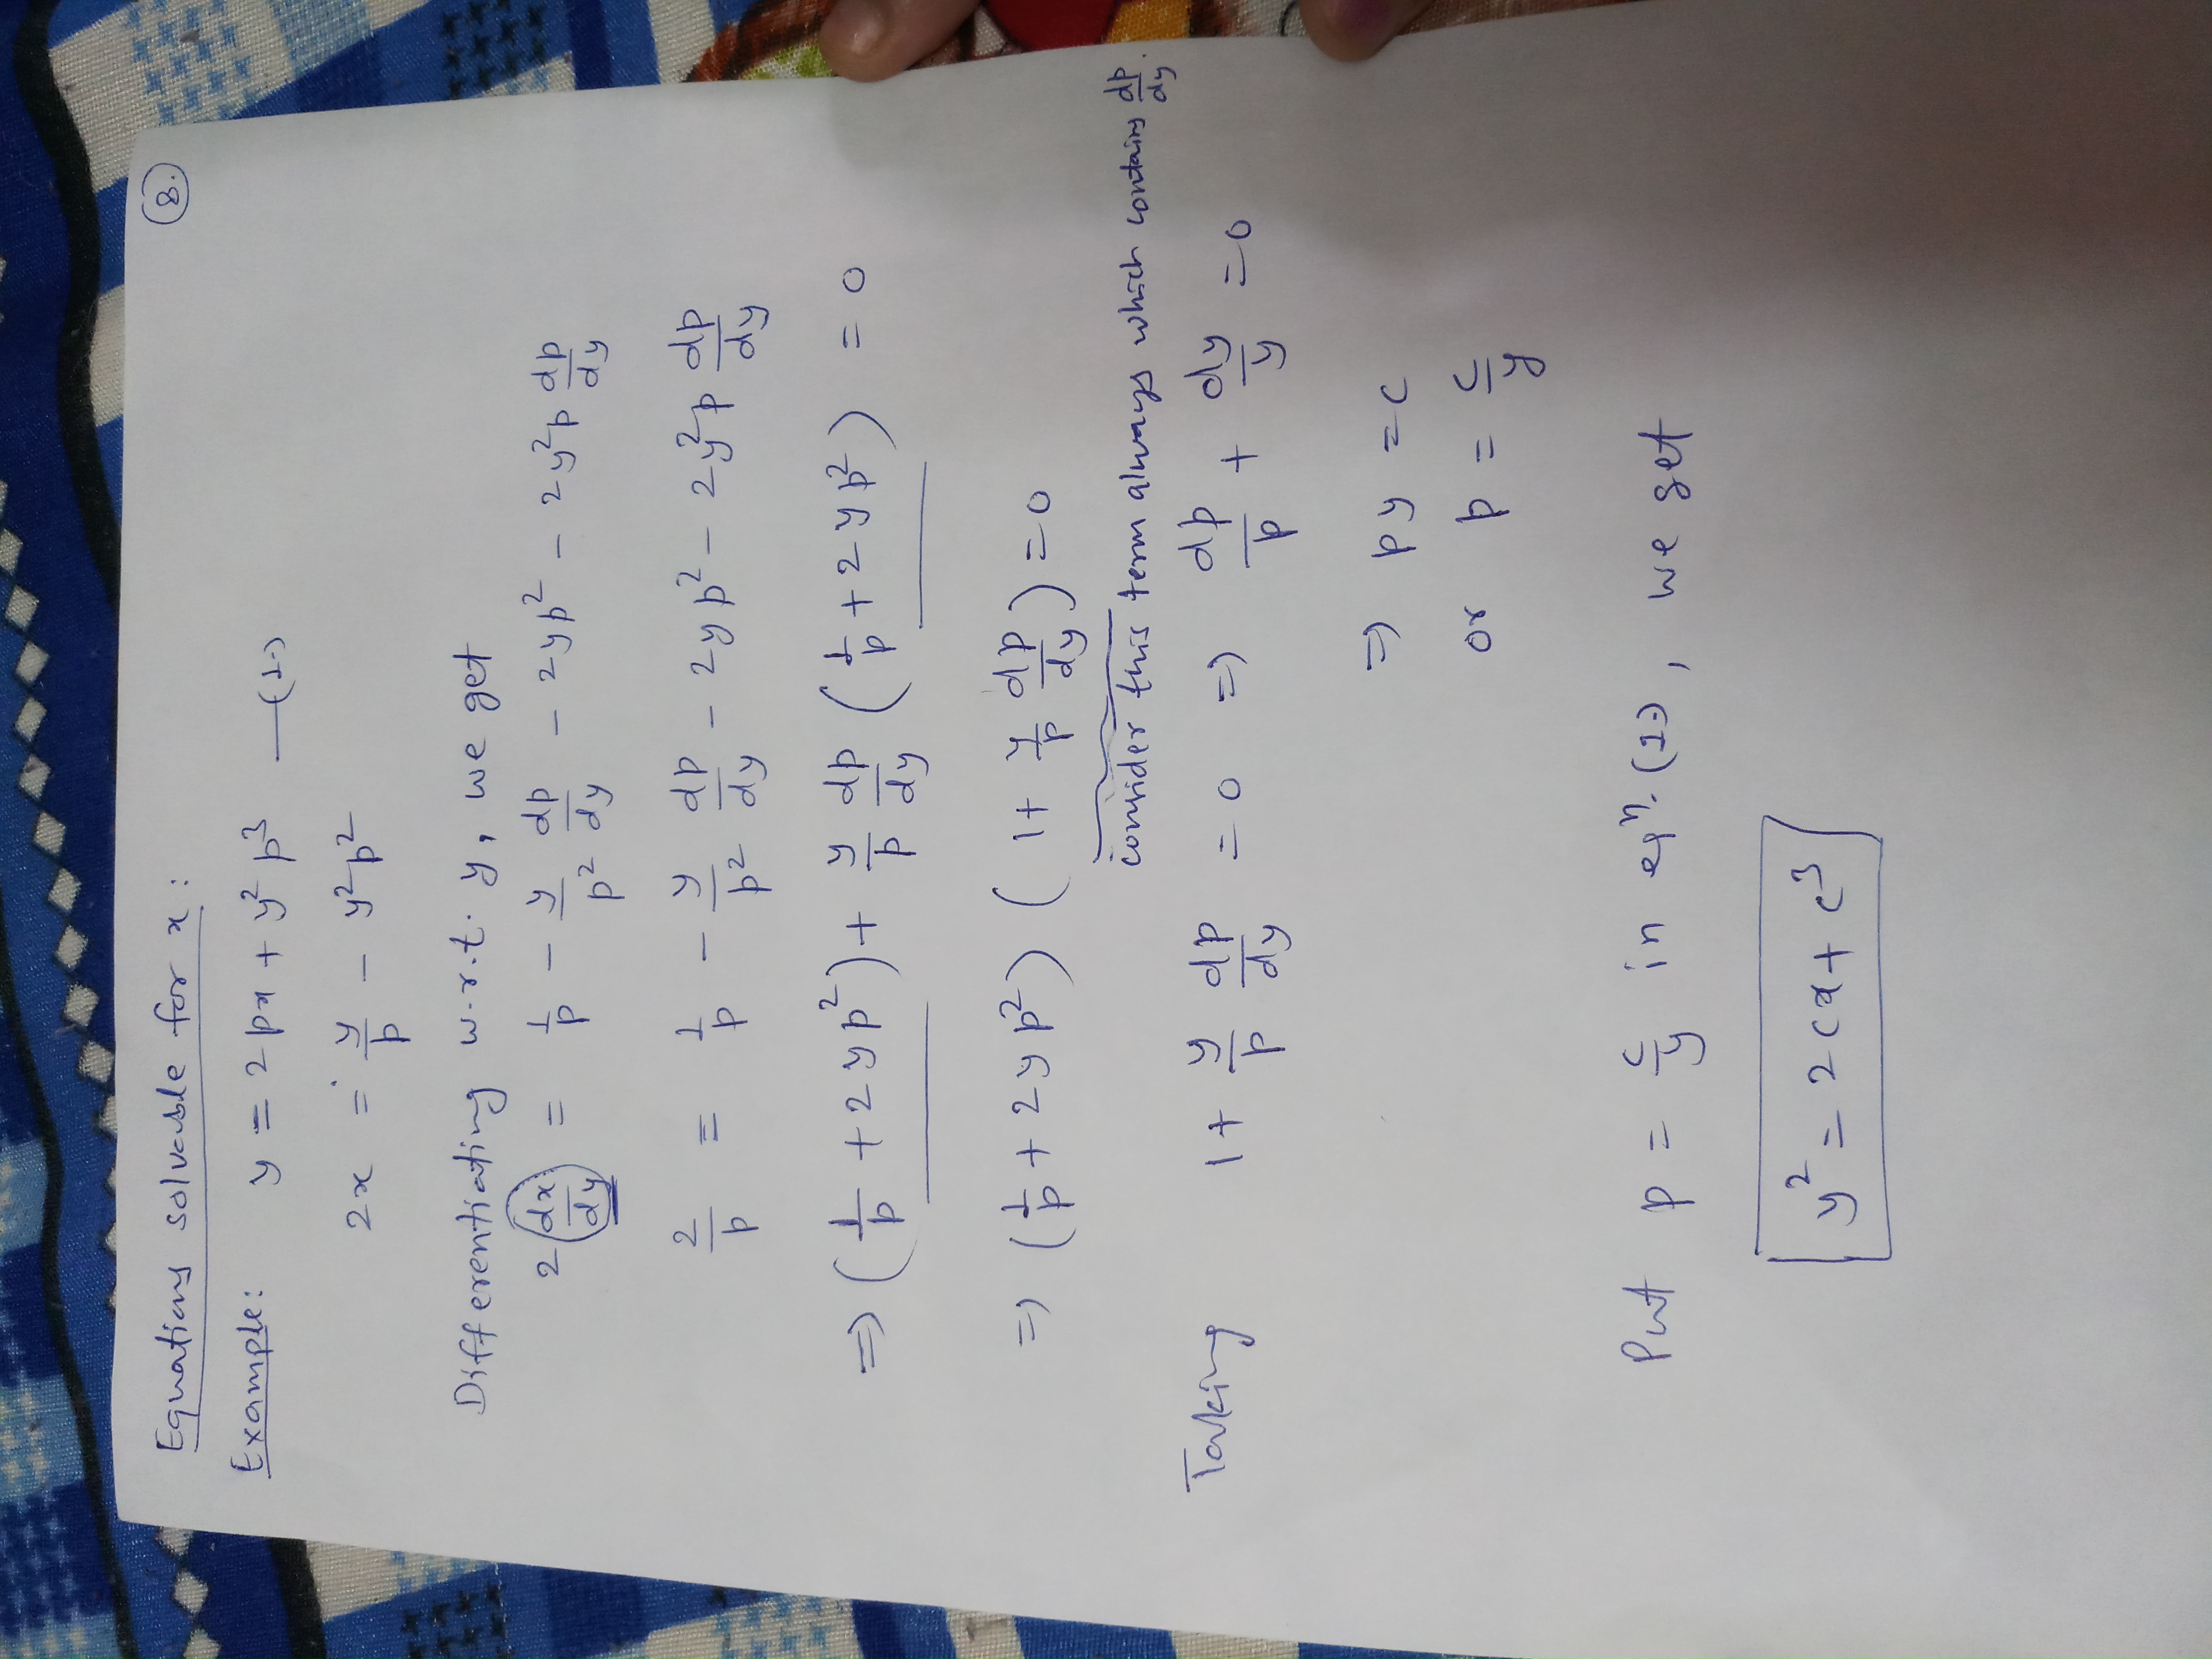 8.
Equations solvable for x:
Example: y = 2px + y²p³ —(1)
2x = y/p - y²p²
Differentiating w.r.t. y, we get
2(dx/dy) = 1/p - y/p² dp/dy - 2yp² - 2y²p dp/dy
2/p = 1/p - y/p² dp/dy - 2yp² - 2y²p dp/dy
⇒ (1/p + 2yp²) + y/p dp/dy (1/p + 2yp²) = 0
⇒ (1/p + 2yp²) (1 + y/p dp/dy) = 0
consider this term always which contains dp/dy.
Taking 1 + y/p dp/dy = 0 ⇒ dp/p + dy/y = 0
⇒ py = c
or p = c/y
Put p = c/y in eqⁿ. (1), we get
y² = 2cx + c³